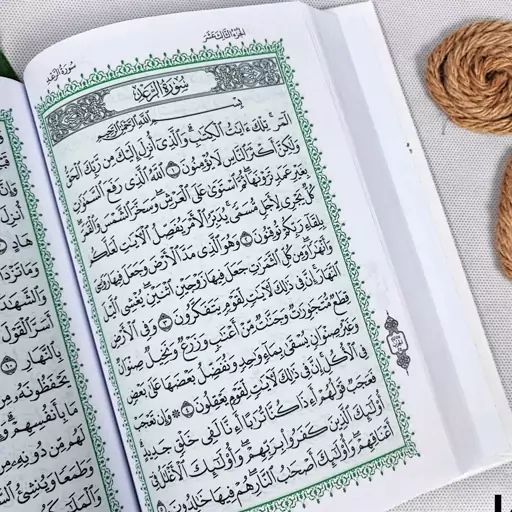 الجزء الثالث عشر
سورة الرعد
سُورَةُ الرَّعْدِ
بِسْمِ اللَّهِ الرَّحْمَٰنِ الرَّحِيمِ
الٓمٓر تِلْكَ ءَايَٰتُ الْكِتَٰبِ وَالَّذِىٓ أُنزِلَ إِلَيْكَ مِن رَّبِّكَ الْحَقُّ
وَلَٰكِنَّ أَكْثَرَ النَّاسِ لَا يُؤْمِنُونَ ١ اللَّهُ الَّذِى رَفَعَ السَّمَٰوَٰتِ
بِغَيْرِ عَمَدٍ تَرَوْنَهَا ثُمَّ اسْتَوَىٰ عَلَى الْعَرْشِ وَسَخَّرَ الشَّمْسَ وَالْقَمَرَ
كُلٌّ يَجْرِى لِأَجَلٍ مُّسَمًّى يُدَبِّرُ الْأَمْرَ يُفَصِّلُ الْءَايَٰتِ لَعَلَّكُم
بِلِقَآءِ رَبِّكُمْ تُوقِنُونَ ٢ وَهُوَ الَّذِى مَدَّ الْأَرْضَ وَجَعَلَ فِيهَا رَوَٰسِىَ
وَأَنْهَٰرًا وَمِن كُلِّ الثَّمَرَٰتِ جَعَلَ فِيهَا زَوْجَيْنِ اثْنَيْنِ يُغْشِى الَّيْلَ
النَّهَارَ إِنَّ فِى ذَٰلِكَ لَءَايَٰتٍ لِّقَوْمٍ يَتَفَكَّرُونَ ٣ وَفِى الْأَرْضِ
قِطَعٌ مُّتَجَٰوِرَٰتٌ وَجَنَّٰتٌ مِّنْ أَعْنَٰبٍ وَزَرْعٌ وَنَخِيلٌ صِنْوَانٌ
وَغَيْرُ صِنْوَانٍ يُسْقَىٰ بِمَآءٍ وَٰحِدٍ وَنُفَضِّلُ بَعْضَهَا عَلَىٰ بَعْضٍ
فِى الْأُكُلِ إِنَّ فِى ذَٰلِكَ لَءَايَٰتٍ لِّقَوْمٍ يَعْقِلُونَ ٤ ۞ وَإِن تَعْجَبْ
فَعَجَبٌ قَوْلُهُمْ أَءِذَا كُنَّا تُرَٰبًا أَءِنَّا لَفِى خَلْقٍ جَدِيدٍ
أُو۟لَٰٓئِكَ الَّذِينَ كَفَرُوا۟ بِرَبِّهِمْ وَأُو۟لَٰٓئِكَ الْأَغْلَٰلُ فِىٓ
أَعْنَاقِهِمْ وَأُو۟لَٰٓئِكَ أَصْحَٰبُ النَّارِ هُمْ فِيهَا خَٰلِدُونَ ٥
أُنزِلَ
هَادٍ
وَمَا تَزْدَادُ
وَالشَّهَٰدَةِ
أَسَرَّ الْقَوْلَ
بِالنَّهَارِ ١٠
يَحْفَظُونَهُۥ مِنْ
مَا بِأَنفُسِهِمْ
لَهُم مِّن دُونِهِۦ مِن
وَطَمَعًا وَيُنشِئُ
وَالْمَلَٰٓئِكَةُ